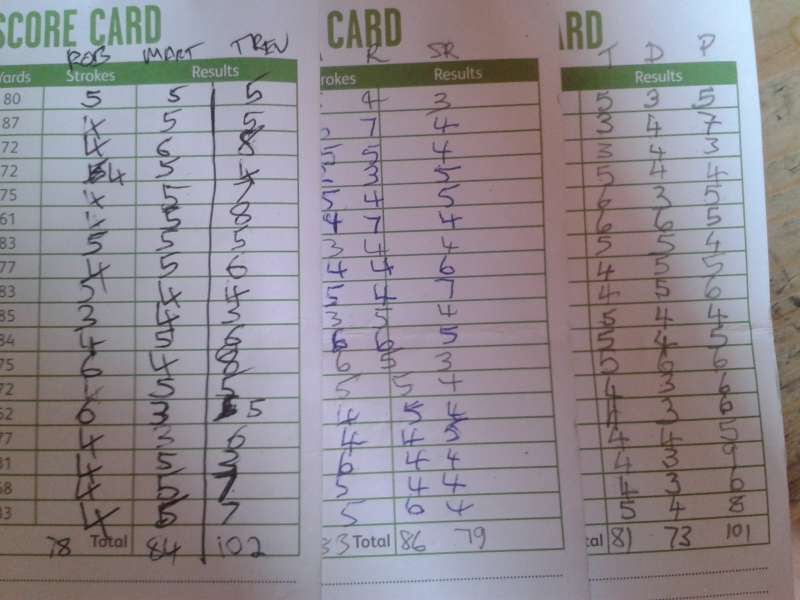 SCORE CARD
ROB MART TREV
Yards Strokes Results
80 5 5 5
87 4 5 5
72 4 6 8
72 4 5 4
75 4 5 7
61 4 5 8
83 5 5 5
77 4 5 6
83 5 4 4
85 3 4 3
84 4 5 6
75 6 4 8
72 5 5
62 6 3 5
77 4 3 6
81 4 5 3
68 4 5 7
83 4 5 7
78 Total 84 102
CARD
R SR
rokes Results
4 3
7 4
5 5 4
3 5
5 4 5
4 7 4
3 4 4
4 4 6
5 4 7
3 5 4
6 6 5
6 5 3
5 5 4
4 5 4
4 4 5
6 4 4
5 4 4
5 6 4
33 Total 86 79
ARD
T D P
Results
5 3 5
3 4 7
3 4 3
5 4 4
6 3 5
6 6 5
5 5 4
4 5 5
4 5 6
5 4 4
5 4 5
5 6 6
4 3 6
4 3 6
4 4 5
4 3 9
4 3 6
5 4 8
tal 81 73 101